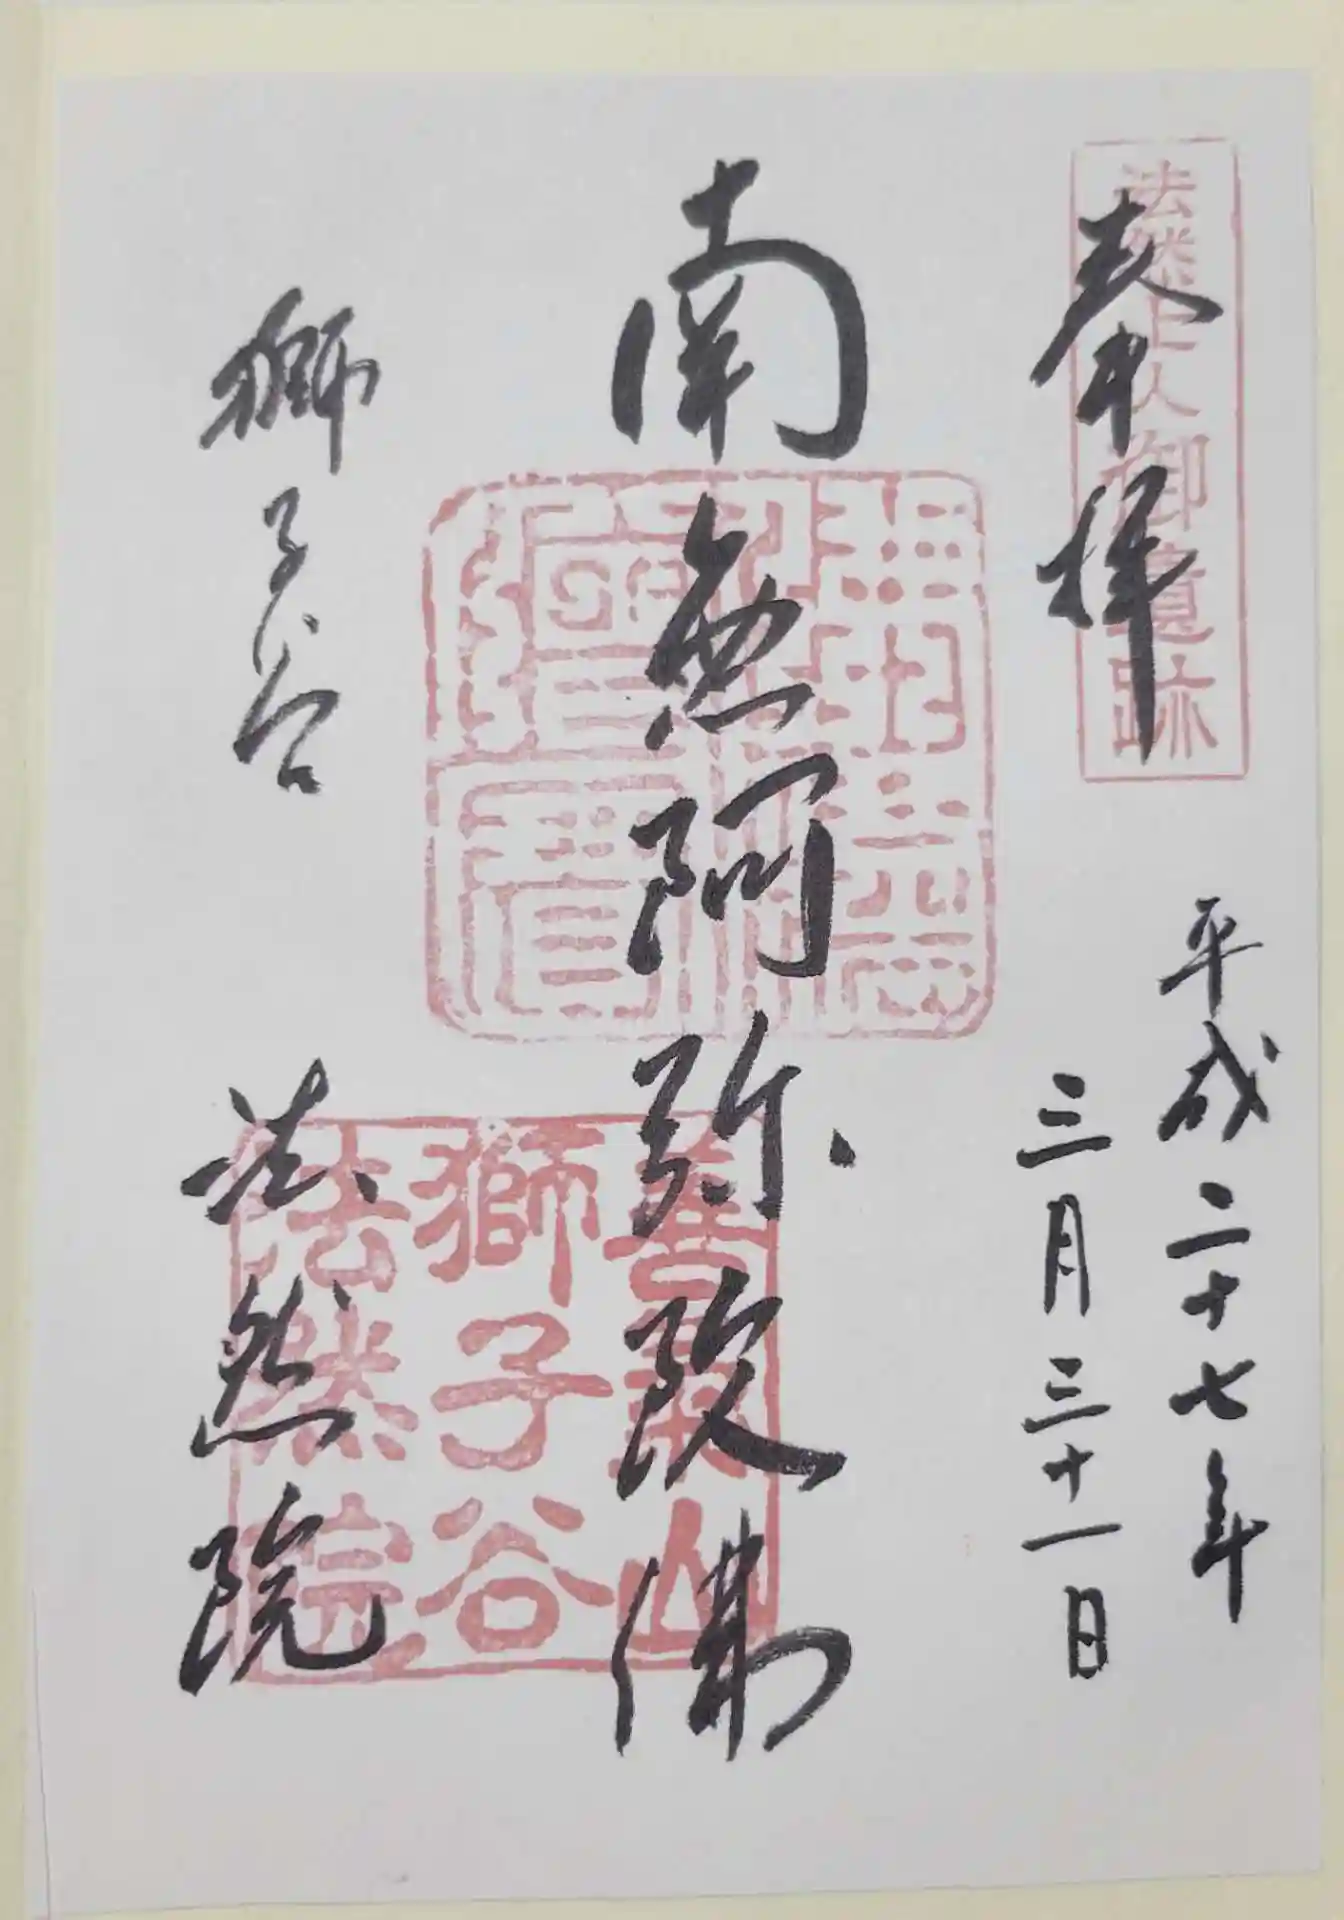 法然上人御遺跡
奉拝
平成二十七年
三月三十一日
南無阿弥陀佛
善氣山
獅子谷
法然院
獅子谷
法然院